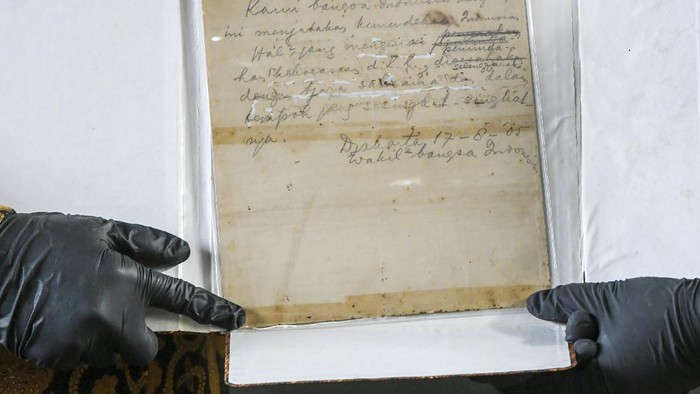 Kami bangsa Indonesia
ini menjatakan kemerdekaan Indonesia
Hal² jang mengenai peminda-
han kekoeasaan d.l.l.,
dengan tjara saksama dan dalam
tempoh jang sesingkat-singkat
nja.
Djakarta 17-8-'05
Wakil² bangsa Indonesia